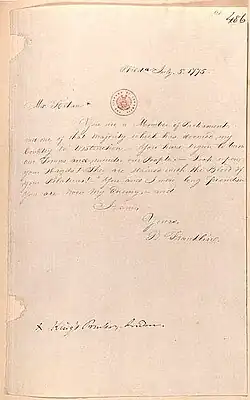 486
Philada July 5. 1775
Mr. Strahan *
You are a Member of Parliament,
and one of that Majority which has doomed my
Country to Destruction. You have begun to burn
our Towns and murder our People. Look upon
your Hands! They are stained with the Blood of
your Relations! You and I were long friends:
You are now my Enemy, and
I am,
Yours,
B. Franklin.
King's Printer, London.